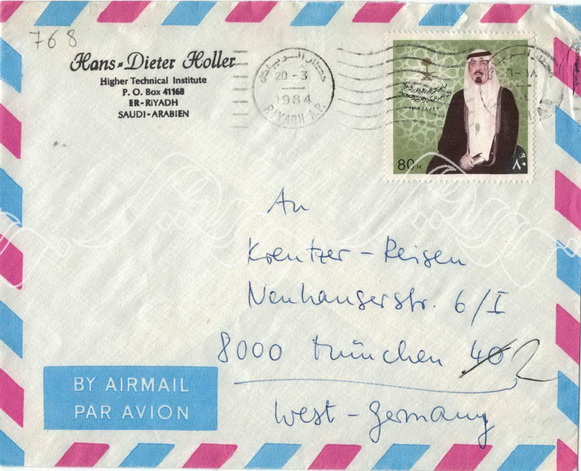 768
Hans-Dieter Holler
Higher Technical Institute
P. O. Box 41168
ER-RiYADH
SAUDI-ARABIEN
20-3
1984
RIYADH A.P.
80
٨٠
An
Kreutzer-Reisen
Neuhauserstr. 6/I
8000 München 40 2
West-Germany
BY AIRMAIL
PAR AVION